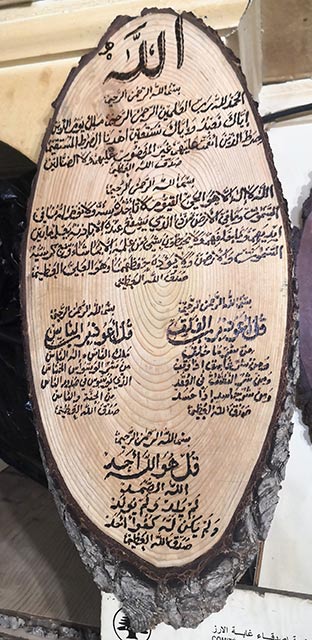 الله
بسم الله الرحمن الرحيم
الحمد لله رب العالمين الرحمن الرحيم مالك يوم الدين
إياك نعبد وإياك نستعين اهدنا الصراط المستقيم
صراط الذين أنعمت عليهم غير المغضوب عليهم ولا الضالين
صدق الله العظيم
بسم الله الرحمن الرحيم
الله لا إله إلا هو الحي القيوم لا تأخذه سنة ولا نوم له ما في
السموات وما في الأرض من ذا الذي يشفع عنده إلا بإذنه يعلم ما بين
أيديهم وما خلفهم ولا يحيطون بشيء من علمه إلا بما شاء وسع كرسيه
السموات والأرض ولا يؤده حفظهما وهو العلي العظيم
صدق الله العظيم
بسم الله الرحمن الرحيم
قل أعوذ برب الفلق
من شر ما خلق
ومن شر غاسق إذا وقب
ومن شر النفاثات في العقد
ومن شر حاسد إذا حسد
صدق الله العظيم
بسم الله الرحمن الرحيم
قل أعوذ برب الناس
ملك الناس إله الناس
من شر الوسواس الخناس
الذي يوسوس في صدور الناس
من الجنة والناس
صدق الله العظيم
بسم الله الرحمن الرحيم
قل هو الله أحد
الله الصمد
لم يلد ولم يولد
ولم يكن له كفوا أحد
صدق الله العظيم
أصدقاء غابة الارز